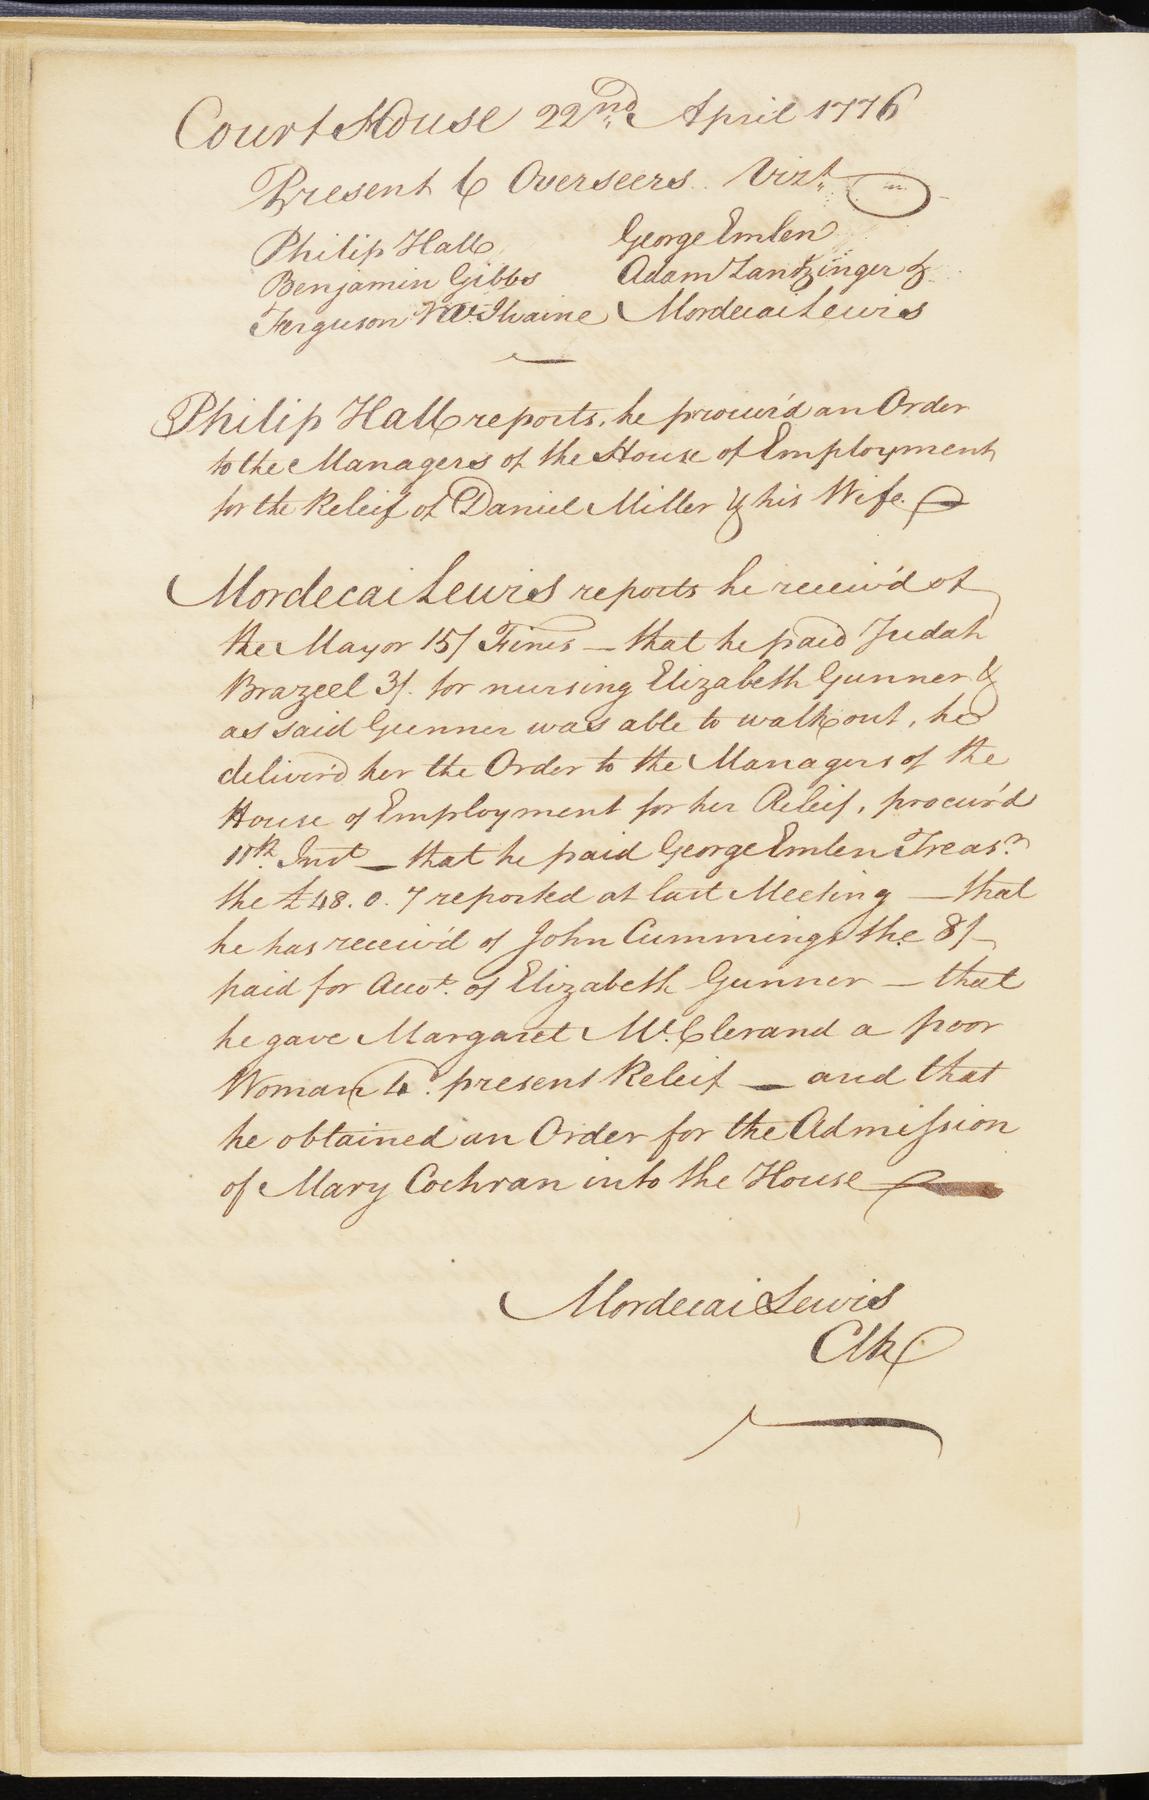 Court House 22nd. April 1776
Present 6 Overseers Vizt.
Philip Hall George Emlen
Benjamin Gibbs Adam Zantzinger &
Ferguson McIlvaine Mordecai Lewis
Philip Hall reports, he procur'd an Order
to the Managers of the House of Employment
for the Releif of Daniel Miller & his Wife
Mordecai Lewis reports he receiv'd of
the Mayor 15/ Fines — that he paid Judah
Brazeel 3/. for nursing Elizabeth Gunner &
as said Gunner was able to walk out, he
deliver'd her the Order to the Managers of the
House of Employment for her Releif, procur'd
11th. Inst — that he paid George Emlen Treasr.
the £48. 0. 7 reported at last Meeting — that
he has receiv'd of John Cummings the 8/
paid for Accot. of Elizabeth Gunner — that
he gave Margaret Mc.Clerand a poor
Woman present Releif — and that
he obtained an Order for the Admission
of Mary Cochran into the House
Mordecai Lewis
Clk